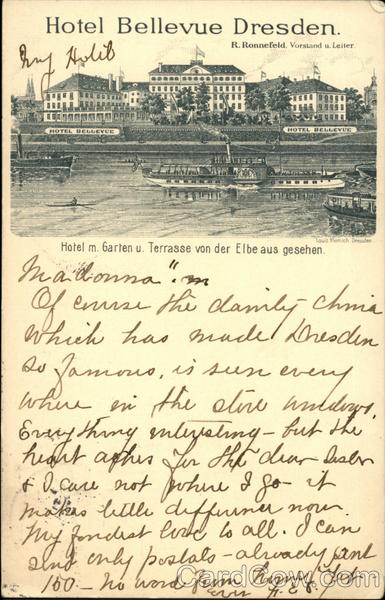 Hotel Bellevue Dresden.
R. Ronnefeld. Vorstand u. Leiter.
HOTEL BELLEVUE
HOTEL BELLEVUE
Louis Dresden.
Hotel m. Garten u. Terrasse von der Elbe aus gesehen.
Madonna".
Of course the dainty china
which has made Dresden
so famous, is seen every
where in the store windows.
Everything interesting - but the
heart aches for the dear sister
& I care not where I go - it
makes little difference now.
My fondest love to all. I can
send only postals - already sent
150 - No word from
CardCow.com